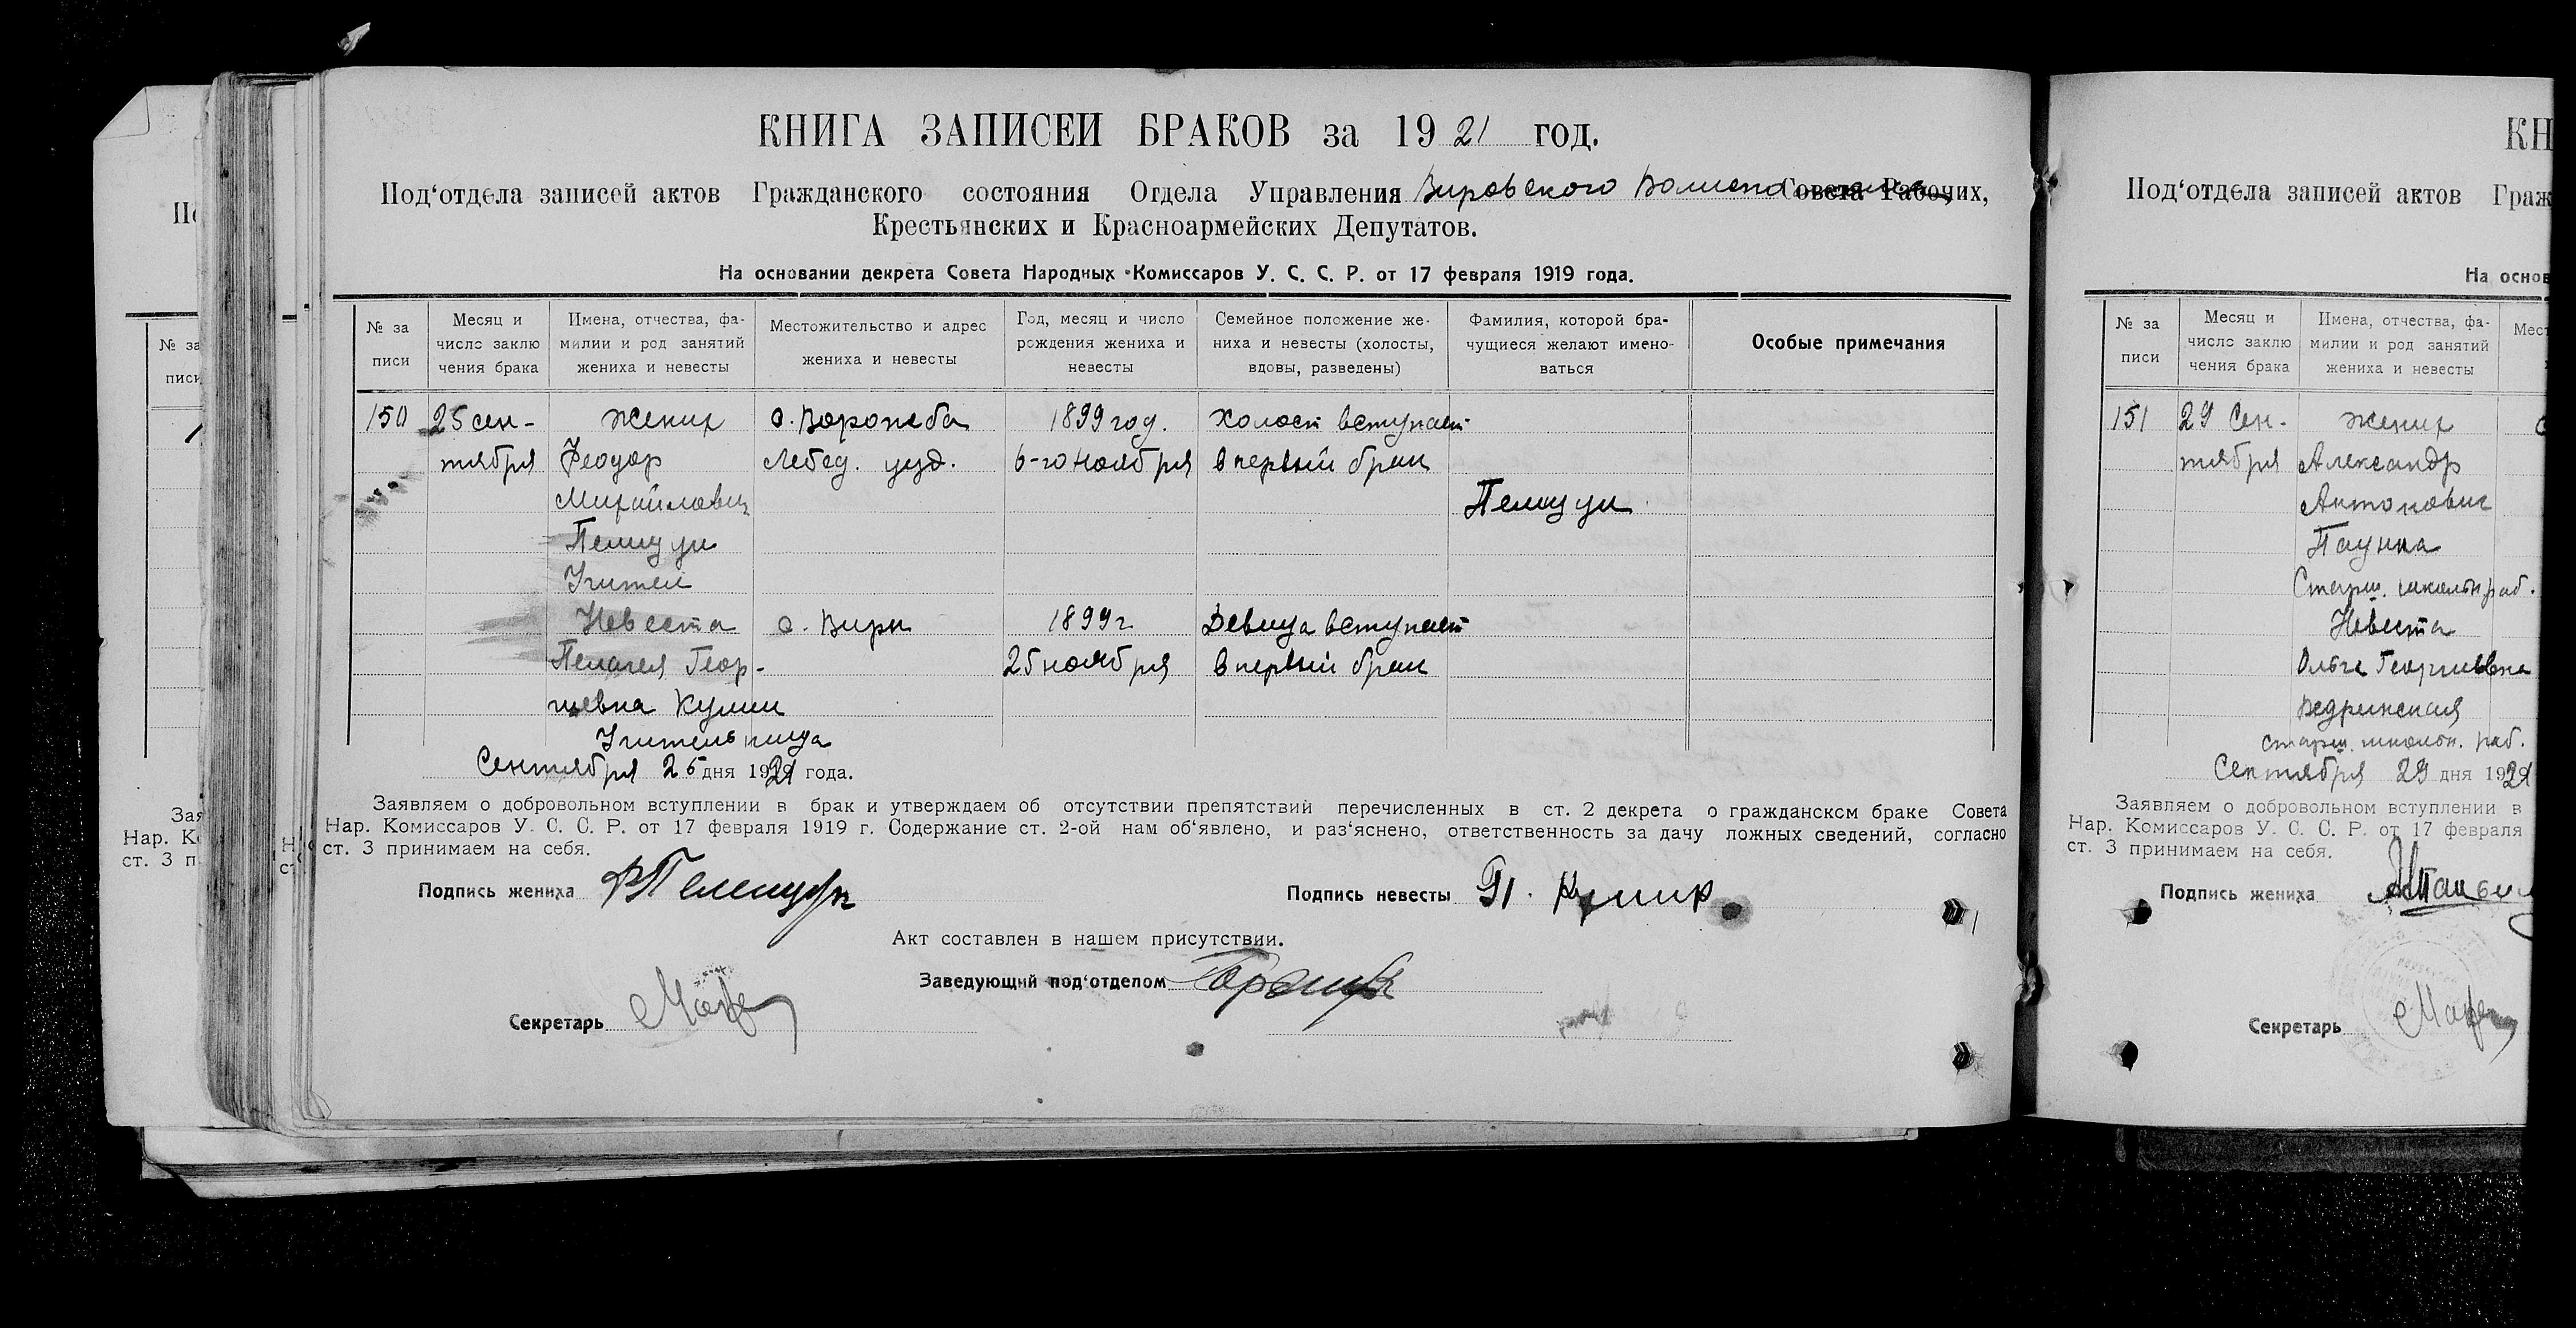 КНИГА ЗАПИСЕЙ БРАКОВ за 1921 год.
Под‘отдела записей актов Гражданского состояния Отдела Управления Вировского Совета Рабочих,
Крестьянских и Красноармейских Депутатов.
На основании декрета Совета Народных Комиссаров У. С. С. Р. от 17 февраля 1919 года.
№ за писи
Месяц и число заклю чения брака
Имена, отчества, фа- милии и род занятий жениха и невесты
Местожительство и адрес жениха и невесты
Год, месяц и число рождения жениха и невесты
Семейное положение же- ниха и невесты (холосты, вдовы, разведены)
Фамилия, которой бра- чущиеся желают имено- ваться
Особые примечания
150 25 сен- Жених с. Ворожба 1899 год. Холост вступает
тября Феодор Лебед. уезд. 6-го ноября в первый брак
Михайлович
Учитель
Невеста с. Виры 1899 г. Девица вступает
Пелагея Геор- 25 ноября в первый брак
гиевна Кушик
Учительница
Сентября 25 дня 1921 года.
Заявляем о добровольном вступлении в брак и утверждаем об отсутствии препятствий перечисленных в ст. 2 декрета о гражданском браке Совета
Нар. Комиссаров У. С. С. Р. от 17 февраля 1919 г. Содержание ст. 2-ой нам об‘явлено, и раз‘яснено, ответственность за дачу ложных сведений, согласно
ст. 3 принимаем на себя.
Подпись жениха
Подпись невесты П.
Акт составлен в нашем присутствии.
Заведующий под‘отделом
Секретарь
КН
Под‘отдела записей актов Граж
На основ
№ за писи
Месяц и число заклю чения брака
Имена, отчества, фа- милии и род занятий жениха и невесты
Мест
151 29 Сен- Жених
тября Александр
Антонович
Старш. школьн. раб.
Невеста
Ольга Георгиевна
Ведринская
старш. школьн. раб.
Сентября 29 дня 1921
Заявляем о добровольном вступлении в
Нар. Комиссаров У. С. С. Р. от 17 февраля
ст. 3 принимаем на себя.
Подпись жениха
Секретарь
№ за
писи
Зая
Нар. Ко
ст. 3 п